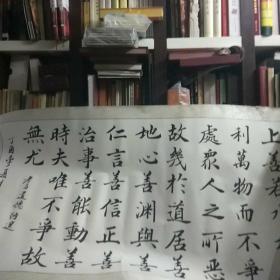 上善若水
利萬物而不爭
處衆人之所惡
故幾於道居善
地心善淵與善
仁言善信正善
治事善能動善
時夫唯不爭故
無尤
丁酉